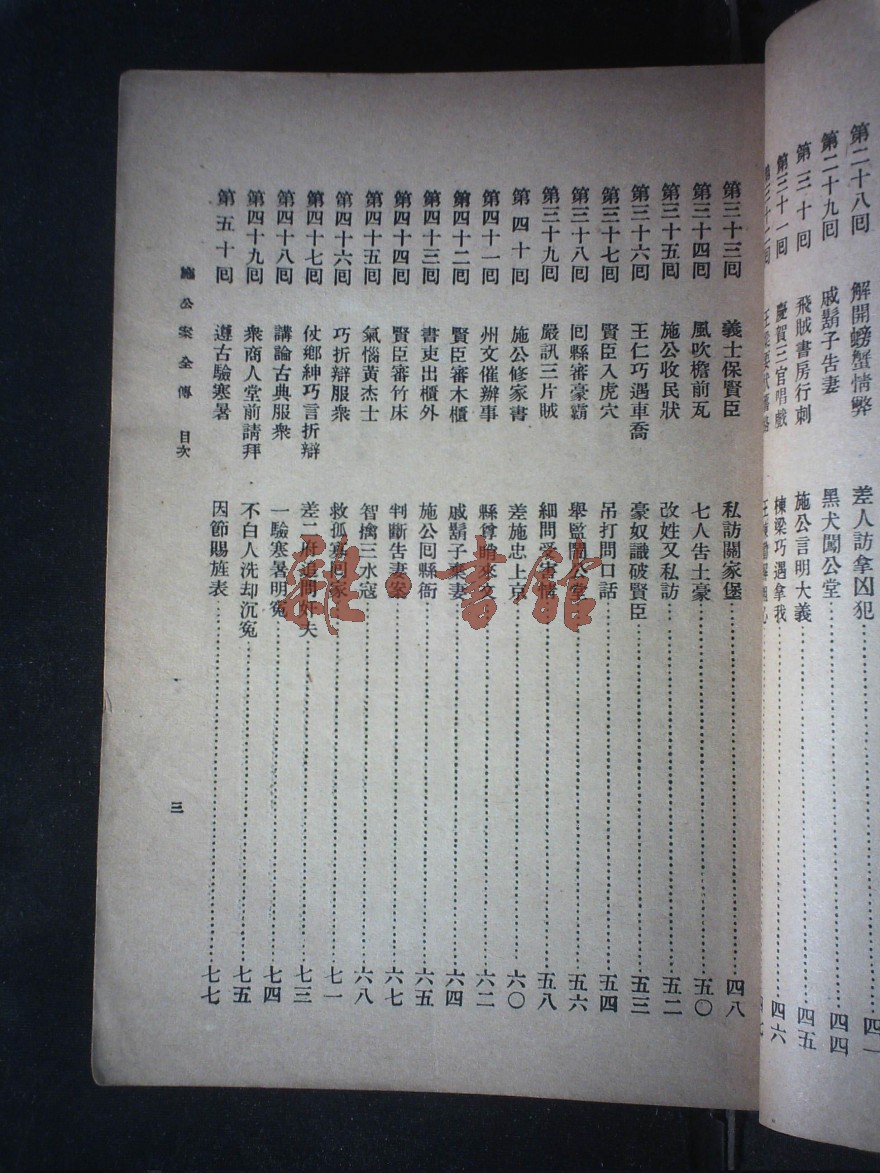 第二十八回 解開螃蟹情弊 差人訪拿凶犯 四一
第二十九回 戚鬍子告妻 黑犬闖公堂 四四
第三十回 飛賊書房行刺 施公言明大義 四五
第三十一回 慶賀三官唱戲 棟梁巧遇拿我 四六
第三十三回 義士保賢臣 私訪關家堡 四八
第三十四回 風吹檐前瓦 七人告土豪 五〇
第三十五回 施公收民狀 改姓又私訪 五二
第三十六回 王仁巧遇車喬 豪奴識破賢臣 五三
第三十七回 賢臣入虎穴 吊打問口話 五四
第三十八回 回縣審豪霸 舉監鬧公堂 五六
第三十九回 嚴訊三片賊 細問受害情 五八
第四十回 施公修家書 差施忠上京 六〇
第四十一回 州文催辦事 縣尊 來文 六二
第四十二回 賢臣審木櫃 戚鬍子棄妻 六四
第四十三回 書吏出櫃外 施公回縣衙 六五
第四十四回 賢臣審竹床 判斷告妻案 六七
第四十五回 氣惱黃杰士 智擒三水寇 六八
第四十六回 巧折辯服衆 救孤寡回家 七一
第四十七回 仗鄉紳巧言折辯 差二府追問奸夫 七三
第四十八回 講論古典服衆 一驗寒暑明冤 七四
第四十九回 衆商人堂前請拜 不白人洗却沉冤 七五
第五十回 遵古驗寒暑 因節賜旌表 七七
施公案全傳 目次
三
雜·書館